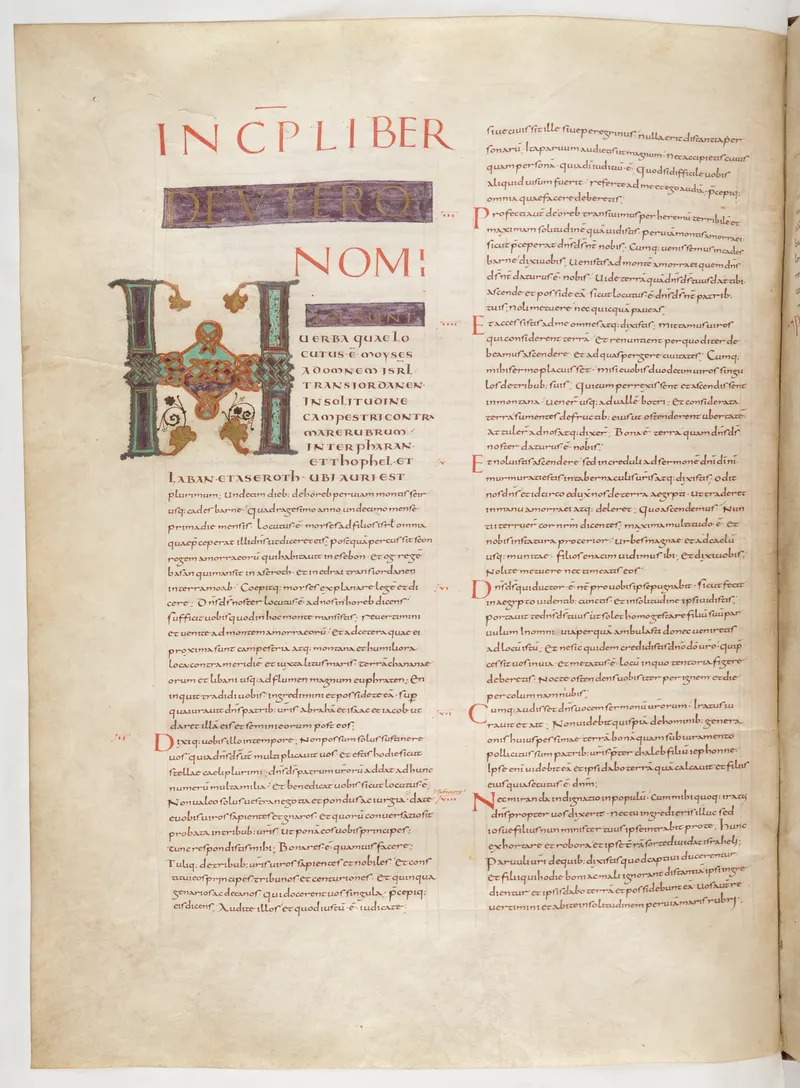 INC̄P LIBER
DEUTERO
NOMI
HAEC SUNT
UERBA QUAE LO
CUTUS Ē MOYSES
AD OMNEM ISRL
TRANS IORDANEN
IN SOLITUDINE
CAMPESTRI CONTRA
MARE RUBRUM
INTER PHARAN
ET THOPHEL ET
LABAN ET ASEROTH UBI AURI EST
plurimum; Undecim dieb; de horeb per uiam montis seir
usq; cades barne; Quadragesimo anno undecimo mense
prima die mensis. Locutus ē moyses ad filios isrl omnia
quae p̄ceperat illi dn̄s ut diceret eis; postquā percussit seon
regem amorraeorū qui habitauit in esebon. et og regē
basan qui mansit in aseroth. et in edrai trans iordanen
in terra moab; Coepitq; moyses explanare legē et di
cere; Dn̄s ds̄ noster locutus ē ad nos in horeb dicens
sufficit uobis quod in hoc monte mansistis; reuertimini
et uenite ad montem amorraeorū. et ad cetera quae ei
proxima sunt campestria atq; montana et humiliora
loca contra meridiē et iuxta litus maris. terrā chanane
orum et libani usq; ad flumen magnum euphraten; En
inquit tradidi uobis; ingredimini et possidete eā. sup
qua iurauit dn̄s patrib; uris̄ abrahā et isaac et iacob ut
daret illā eis et semini eorum post eos;
Dixiq; uobis illo in tempore; Non possum solus sustinere
uos quia dn̄s ds̄ ur̄ multiplicauit uos et estis hodie sicut
stellae caeli plurimi; dn̄s ds̄ patrum urorū addat ad hunc
numerū multa milia. et benedicat uobis sicut locutus ē;
Non ualeo solus uestra negotia et pondus ac iurgia; date
e uobis uiros sapientes et gnaros et quorū conuersatio sit
probata in tribub; uris̄. ut ponā eos uobis principes;
tunc respondistis mihi; Bona res ē quam uis facere;
Tuliq; de tribub; uris̄ uiros sapientes et nobiles. et cons
titui eos principes tribunos et centuriones. et quinqua
genarios ac decanos qui docerent uos singula. p̄cepiq;
eis dicens; Audite illos et quod iustū ē iudicate.
siue ciuis sit ille siue peregrinus. nulla erit distantia per
sonarū; Ita paruum audietis ut magnum. nec accipietis cuius
quam personā. quia di iudiciū ē; Quod si difficile uobis
aliquid uisum fuerit. referte ad me et ego audiā. p̄cepiq;
omnia quae facere deberetis.
Profecti aut̄ de oreb transiuimus per heremū terribilē et
maximam solitudinē quā uidistis. per uiā montis amorraei
sicut p̄ceperat dn̄s ds̄ nr̄ nobis; Cumq; uenissemus in cades
barne dixi uobis; Uenistis ad montē amorraei quem dn̄s
ds̄ nr̄ daturus ē nobis; Uide terrā quā dn̄s ds̄ tuus dat tibi.
Ascende et posside eā. sicut locutus ē dn̄s ds̄ nr̄ patrib;
tuis; noli metuere nec quicquā paueas;
Et accessistis ad me omnes atq; dixistis; mittamus uiros
qui considerent terrā. et renuntient per quod iter de
beamus ascendere. et ad quas pergere ciuitates; Cumq;
mihi sermo placuisset. misi e uobis duodecim uiros singu
los de tribub; suis; Qui cum perrexissent et ascendissent
in montana. uener̄ usq; ad uallē botri; et considerata
terra sumentes de fructib; eius ut ostenderent ubertatē
Attuler̄ ad nos atq; dixer̄; Bona ē terra quam dn̄s ds̄
noster daturus ē nobis;
Et noluistis ascendere. sed increduli ad sermonē dn̄i di nr̄i
murmurati estis in tabernaculis uris̄ atq; dixistis; odit
nos dn̄s et idcirco eduxit nos de terra aegypti. ut traderet
in manu amorraei atq; deleret; Quo ascendemus; Nun
tii terruer̄ cor nrm̄ dicentes; maxima multitudo ē et
nobis in statura procerior. urbes magnae et ad caelū
usq; munitae. filios enacim uidimus ibi; et dixi uobis;
Nolite metuere nec timeatis eos;
Dn̄s ds̄ qui ductor ē nr̄ pro uobis ipse pugnabit. sicut fecit
in aegypto uidentib; cunctis et in solitudine ipsi uidistis;
portauit te dn̄s ds̄ tuus ut solet homo gestare filiū suū par
uulum In omni uia per quā ambulastis donec ueniretis
ad locū istū; et nec sic quidem credidistis dn̄o dō uro. qui p̄
cessit uos in uia. et metatus ē locū in quo tentoria figere
deberetis; Nocte ostendens uobis iter per ignem et die
per columnam nubis;
Cumq; audisset dn̄s uocem sermonū urorum. Iratus iu
rauit et ait; Non uidebit quispiā de hominib; genera
tionis huius pessimae terrā bonā quam sub iuramento
pollicitus sum patrib; uris̄ p̄ter chaleb filiū iephonne;
Ipse eni uidebit eā et ipsi dabo terrā quā calcauit et filiis
eius quia secutus ē dn̄m;
Nec miranda indignatio in populū. Cum mihi quoq; iratus
dn̄s propter uos dixerit; nec tu ingredieris illuc sed
iosue filius nun minister tuus ipse intrabit pro te; hunc
exhortare et robora et ipse terrā sorte diuidat israheli;
Paruuli uri de quib; dixistis quod captiui ducerentur
et filii qui hodie boni ac mali ignorant distantiā ipsi ingre
dientur. et ipsis dabo terrā et possidebunt eā. Uos aut̄ re
uertimini et abite in solitudinem per uiā maris rubri;